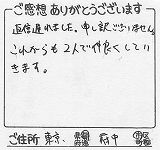 ご感想 ありがとうございます
返信遅れました。申し訳ございません。
これからも2人で仲良くしてい
きます。
ご住所 東京 都道府県 府中 市区町村